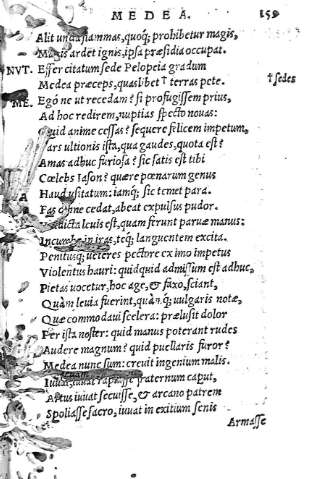 MEDEA. 159
Alit unda flammas, quoq; prohibetur magis,
Magis ardet ignis, ipsa præsidia occupat.
NVT. Effer citatum sede Pelopeia gradum
Medea præceps, quaslibet † terras pete. † sedes
ME. Ego ne ut recedam? si profugissem prius,
Ad hoc redirem, nuptias specto nouas:
Quid anime cessas? sequere felicem impetum,
Pars ultionis ista, qua gaudes, quota est?
Amas adhuc furiosa? sic satis est tibi
Cœlebs Iason? quere pœnarum genus
Haud usitatum: iamq; sic temet para.
Fas omne cedat, abeat expulsus pudor.
Vindicta leuis est, quam ferunt puræ manus:
Incumbe in iras, teq; languentem excita.
Penitusq; ueteres pectore ex imo impetus
Violentus hauri: quidquid admissum est adhuc,
Pietas uocetur, hoc age, & faxo, sciant,
Quàm leuia fuerint, quàmq; uulgaris notæ,
Quæ commodaui scelera: prælusit dolor
Per ista noster: quid manus poterant rudes
Audere magnum? quid puellaris furor?
Medea nunc sum: creuit ingenium malis.
Iuuat, iuuat rapuisse fraternum caput,
Artus iuuat secuisse, & arcano patrem
Spoliasse sacro, iuuat in exitium senis
Armasse